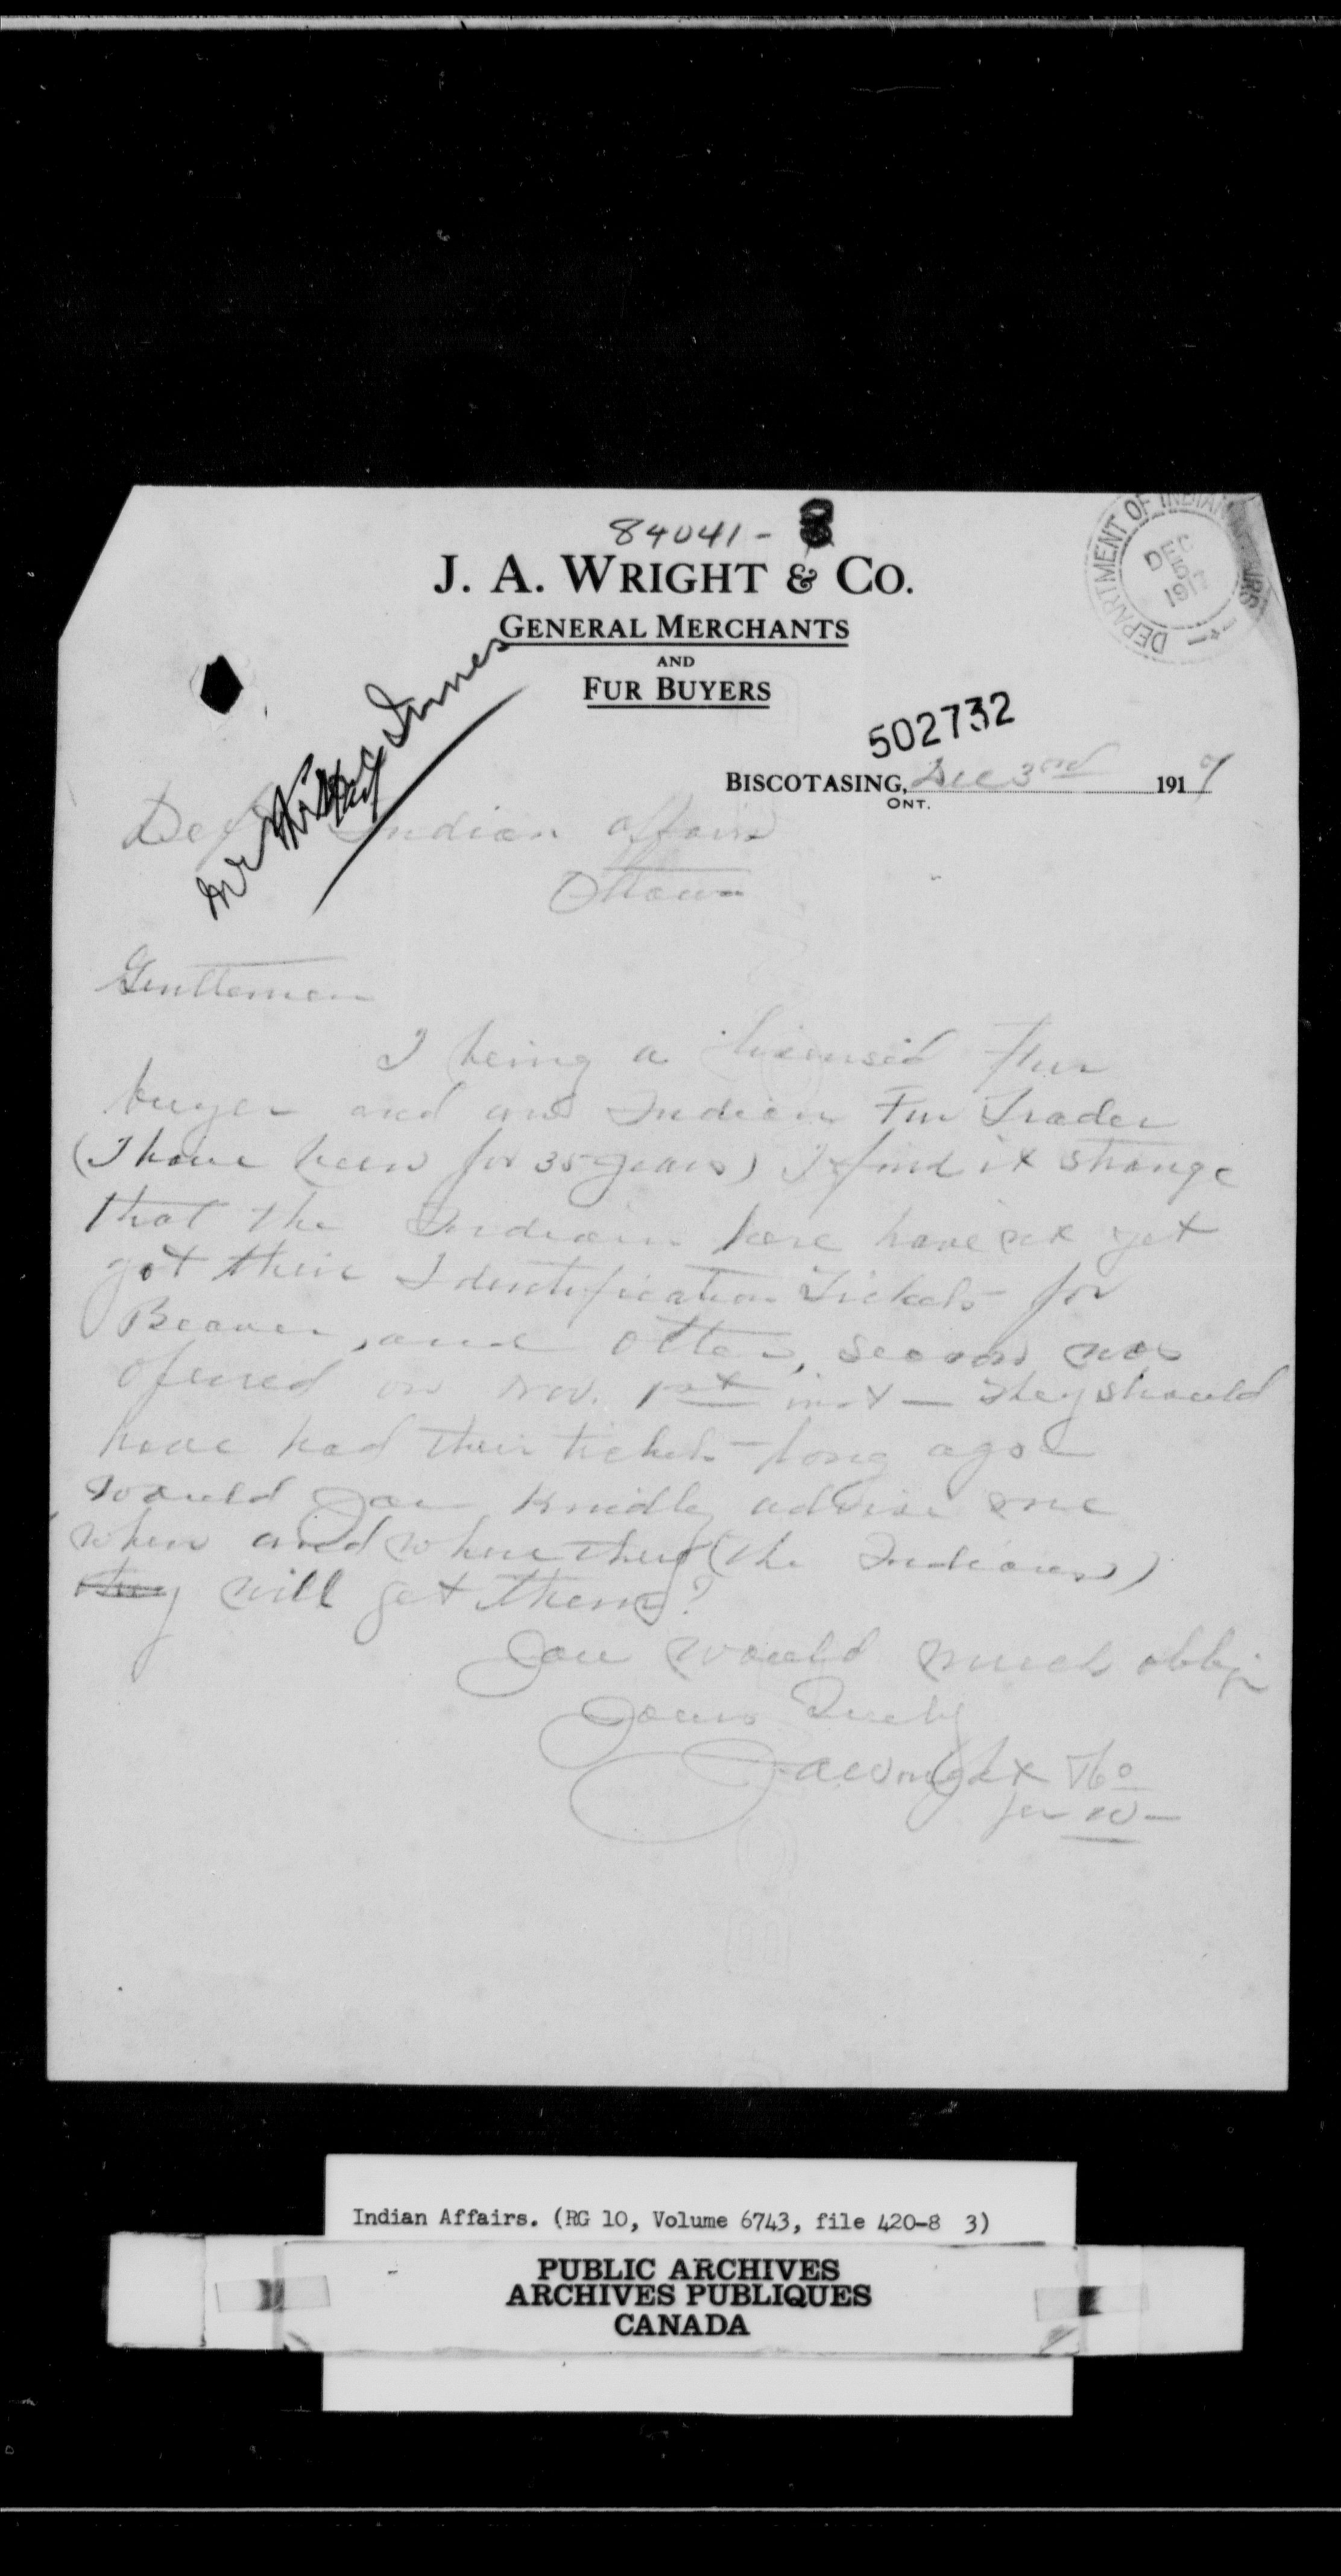 84041-8
J. A. WRIGHT & CO.
GENERAL MERCHANTS
AND
FUR BUYERS
DEPARTMENT OF INDIAN AFFAIRS
DEC
5
1917
502732
BISCOTASING, Dec 3rd 1917
ONT.
Mr Innes
Dept Indian affairs
Ottawa
Gentlemen
I being a licensed Fur
buyer and an Indian Fur Trader
(I have been for 35 years) I find it strange
that the Indians here have not yet
got their Identification Tickets for
Beaver, and otter, season was
opened on Nov. 1st inst — They should
have had their tickets long ago
would you kindly advise me
when and where they (the Indians)
they will get them?
You would much oblige
Yours Truly
J A Wright & Co
per W—
Indian Affairs. (RG 10, Volume 6743, file 420-8 3)
PUBLIC ARCHIVES
ARCHIVES PUBLIQUES
CANADA